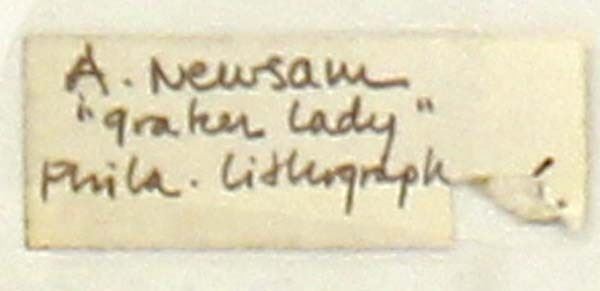 A. Newsam
"Quaker Lady"
Phila. Lithograph